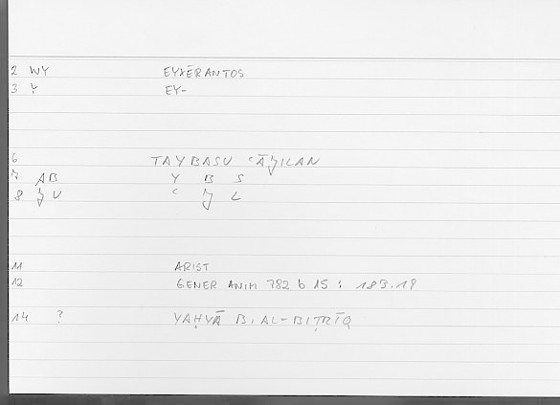 2 WY EYXĒRANTOS
3 Y EY-
6 TAYBASU ʿĀǦILAN
7 AB Y B S
8 ǦU ʿ Ǧ L
11 ARIST
12 GENER ANIM 782 b 15 : 183.19
14 ? YAḤYĀ B. AL-BIṬRĪQ